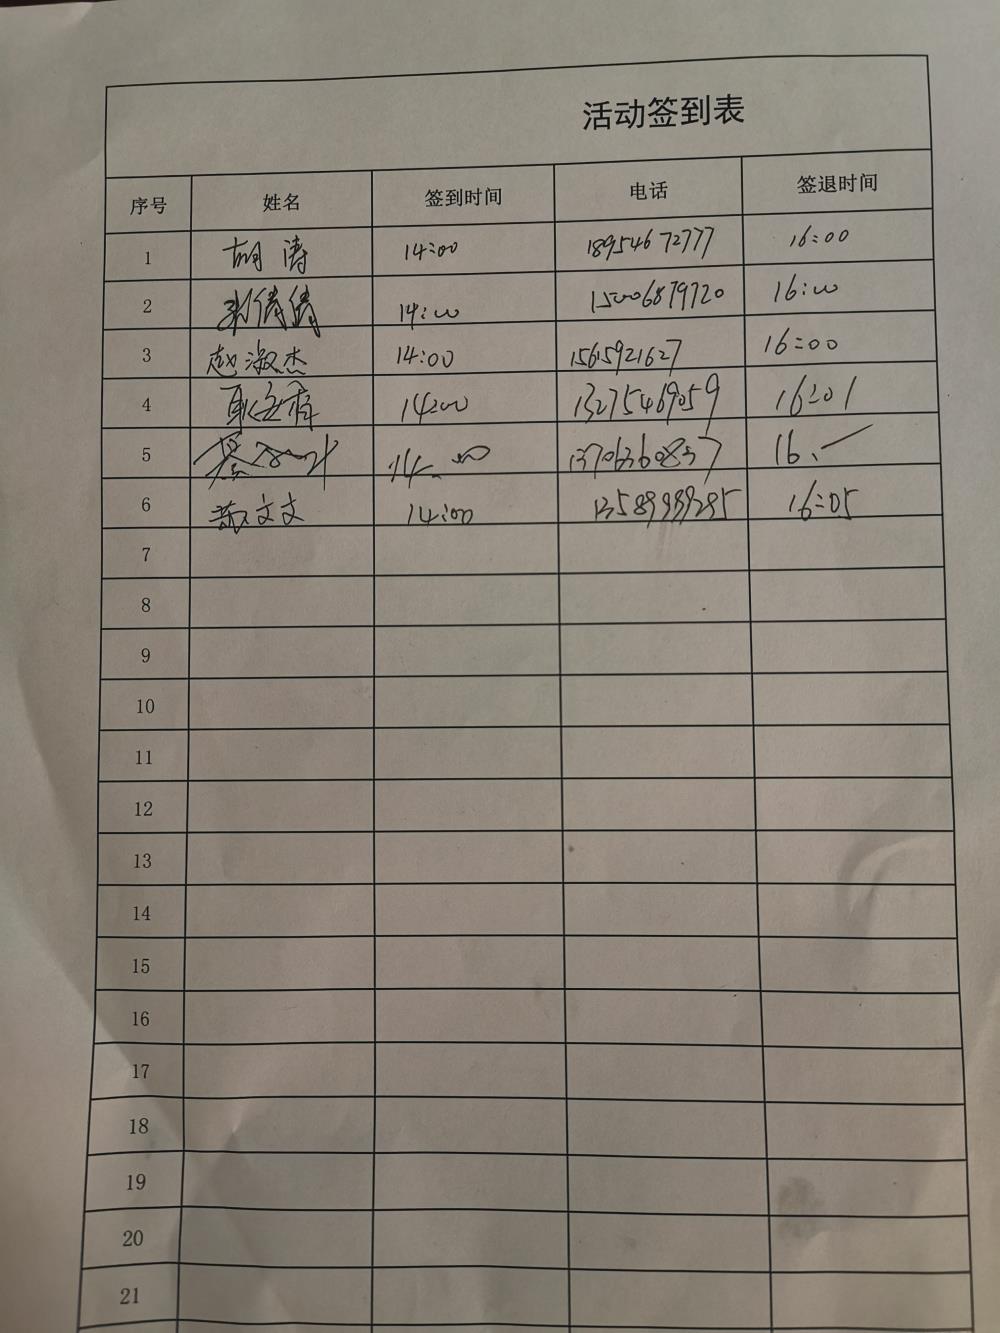 活动签到表
序号 姓名 签到时间 电话 签退时间
1 胡涛 14:00 18954672777 16:00
2 倩倩 14:00 15006879720 16:00
3 赵淑杰 14:00 15615921627 16:00
4 14:00 13275469059 16:01
5 14:00 16
6 文文 14:00 13589989295 16:05
7
8
9
10
11
12
13
14
15
16
17
18
19
20
21